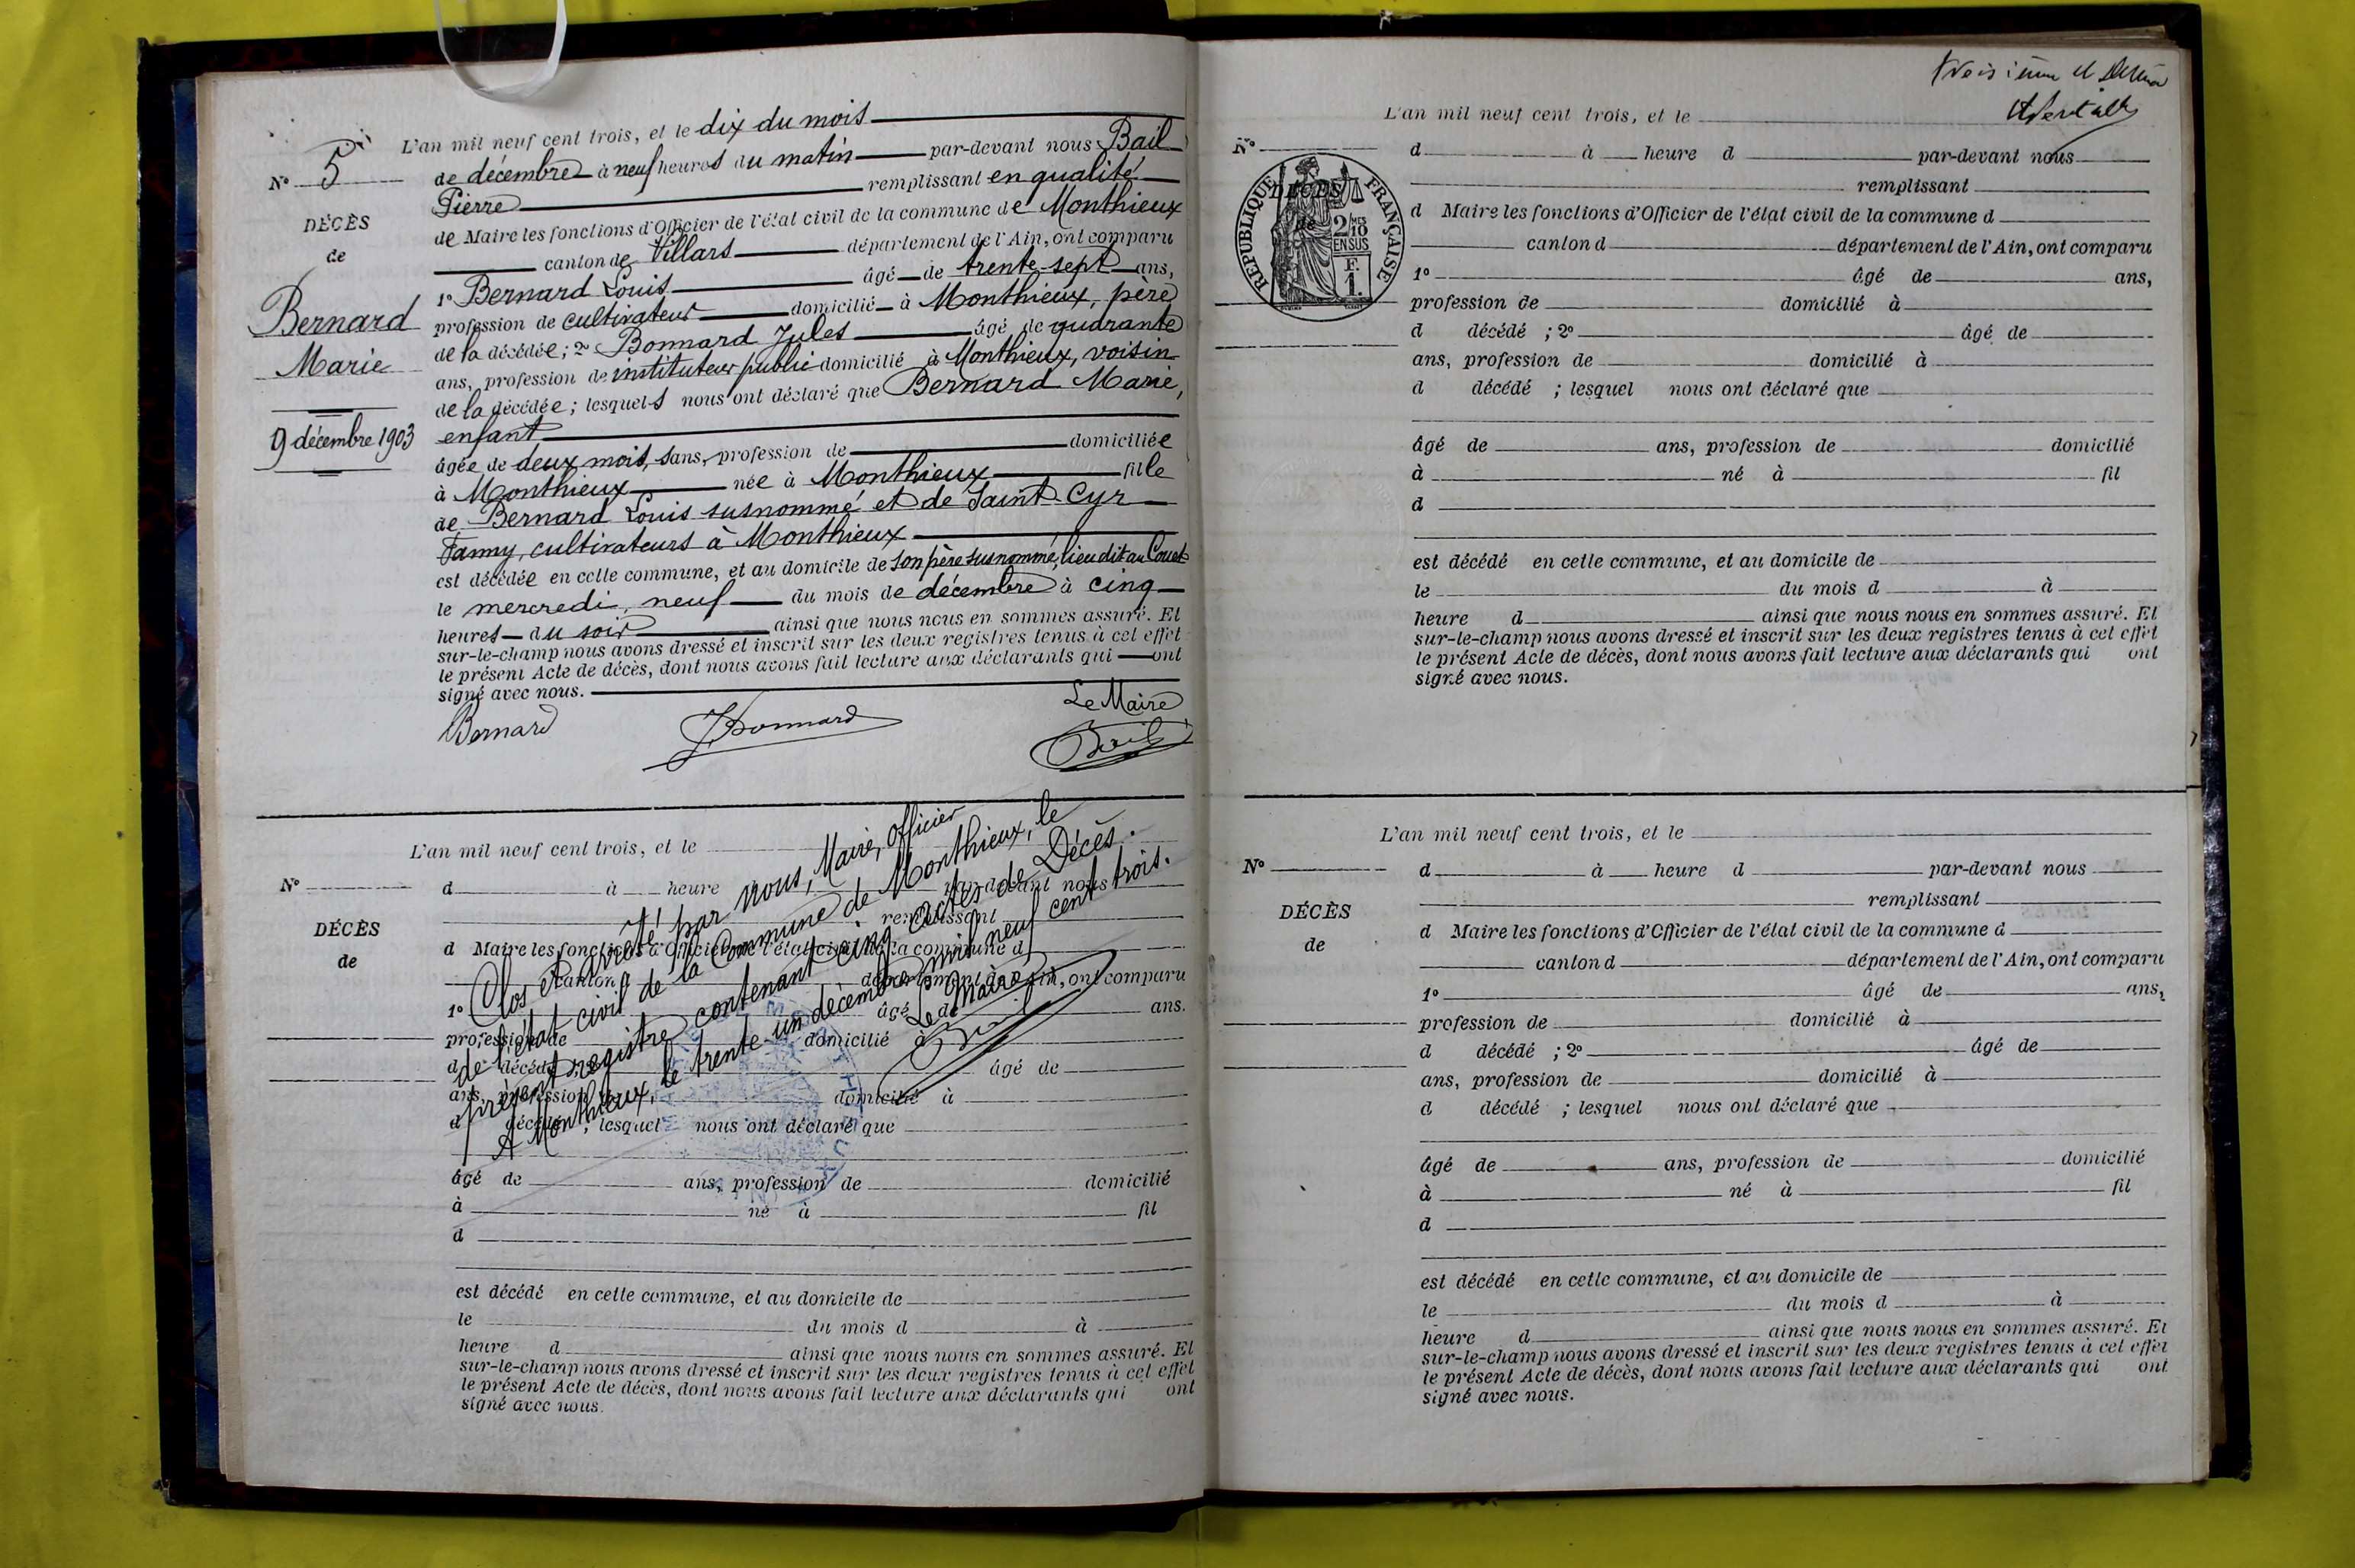 L'an mil neuf cent trois, et le dix du mois
N° 5
de décembre à neuf heures du matin par-devant nous Bail
Pierre remplissant en qualité
DÉCÈS
de Maire les fonctions d'Officier de l'état civil de la commune de Monthieux
de
canton de Villars département de l'Ain, ont comparu
1° Bernard Louis âgé de trente-sept ans,
Bernard
profession de cultivateur domicilié à Monthieux, père
de la décédée ; 2° Bonnard Jules âgé de quarante
Marie
ans, profession de instituteur public domicilié à Monthieux, voisin
de la décédée ; lesquels nous ont déclaré que Bernard Marie,
9 décembre 1903
enfant
âgée de deux mois, sans, profession de domiciliée
à Monthieux née à Monthieux fille
de Bernard Louis susnommé et de Saint-Cyr
Fanny, cultivateurs à Monthieux
est décédée en cette commune, et au domicile de son père susnommé, lieu dit au
le mercredi, neuf du mois de décembre à cinq
heures du soir ainsi que nous nous en sommes assuré. Et
sur-le-champ nous avons dressé et inscrit sur les deux registres tenus à cet effet
le présent Acte de décès, dont nous avons fait lecture aux déclarants qui ont
signé avec nous.
Le Maire
Bernard JBonnard Bail
L'an mil neuf cent trois, et le
N°
d à heure par-devant nous
remplissant
DÉCÈS
d Maire les fonctions d'Officier de l'état civil de la commune d
de
canton d département de l'Ain, ont comparu
1° âgé de ans.
profession de domicilié à
d décédé âgé de
ans, profession domicilié à
d décédé ; lesquel nous ont déclaré que
âgé de ans, profession de domicilié
à né à fil
d
est décédé en cette commune, et au domicile de
le du mois d à
heure d ainsi que nous nous en sommes assuré. Et
sur-le-champ nous avons dressé et inscrit sur les deux registres tenus à cet effet
le présent Acte de décès, dont nous avons fait lecture aux déclarants qui ont
signé avec nous.
Clos et arrêté par nous, Maire, officier
de l'état civil de la Commune de Monthieux, le
présent registre contenant cinq actes de Décès.
A Monthieux, le trente-un décembre mil neuf cent trois.
Le Maire
Bail
troisième et
L'an mil neuf cent trois, et le
N°
d à heure d par-devant nous
remplissant
RÉPUBLIQUE FRANÇAISE
DÉCÈS
de
2/10
EN SUS
F.
1.
d Maire les fonctions d'Officier de l'état civil de la commune d
canton d département de l'Ain, ont comparu
1° âgé de ans,
profession de domicilié à
d décédé ; 2° âgé de
ans, profession de domicilié à
d décédé ; lesquel nous ont déclaré que
âgé de ans, profession de domicilié
à né à fil
d
est décédé en cette commune, et au domicile de
le du mois d à
heure d ainsi que nous nous en sommes assuré. Et
sur-le-champ nous avons dressé et inscrit sur les deux registres tenus à cet effet
le présent Acte de décès, dont nous avons fait lecture aux déclarants qui ont
signé avec nous.
L'an mil neuf cent trois, et le
N°
d à heure d par-devant nous
remplissant
DÉCÈS
d Maire les fonctions d'Officier de l'état civil de la commune d
de
canton d département de l'Ain, ont comparu
1° âgé de ans,
profession de domicilié à
d décédé ; 2° âgé de
ans, profession de domicilié à
d décédé ; lesquel nous ont déclaré que
âgé de ans, profession de domicilié
à né à fil
d
est décédé en cette commune, et au domicile de
le du mois d à
heure d ainsi que nous nous en sommes assuré. Et
sur-le-champ nous avons dressé et inscrit sur les deux registres tenus à cet effet
le présent Acte de décès, dont nous avons fait lecture aux déclarants qui ont
signé avec nous.